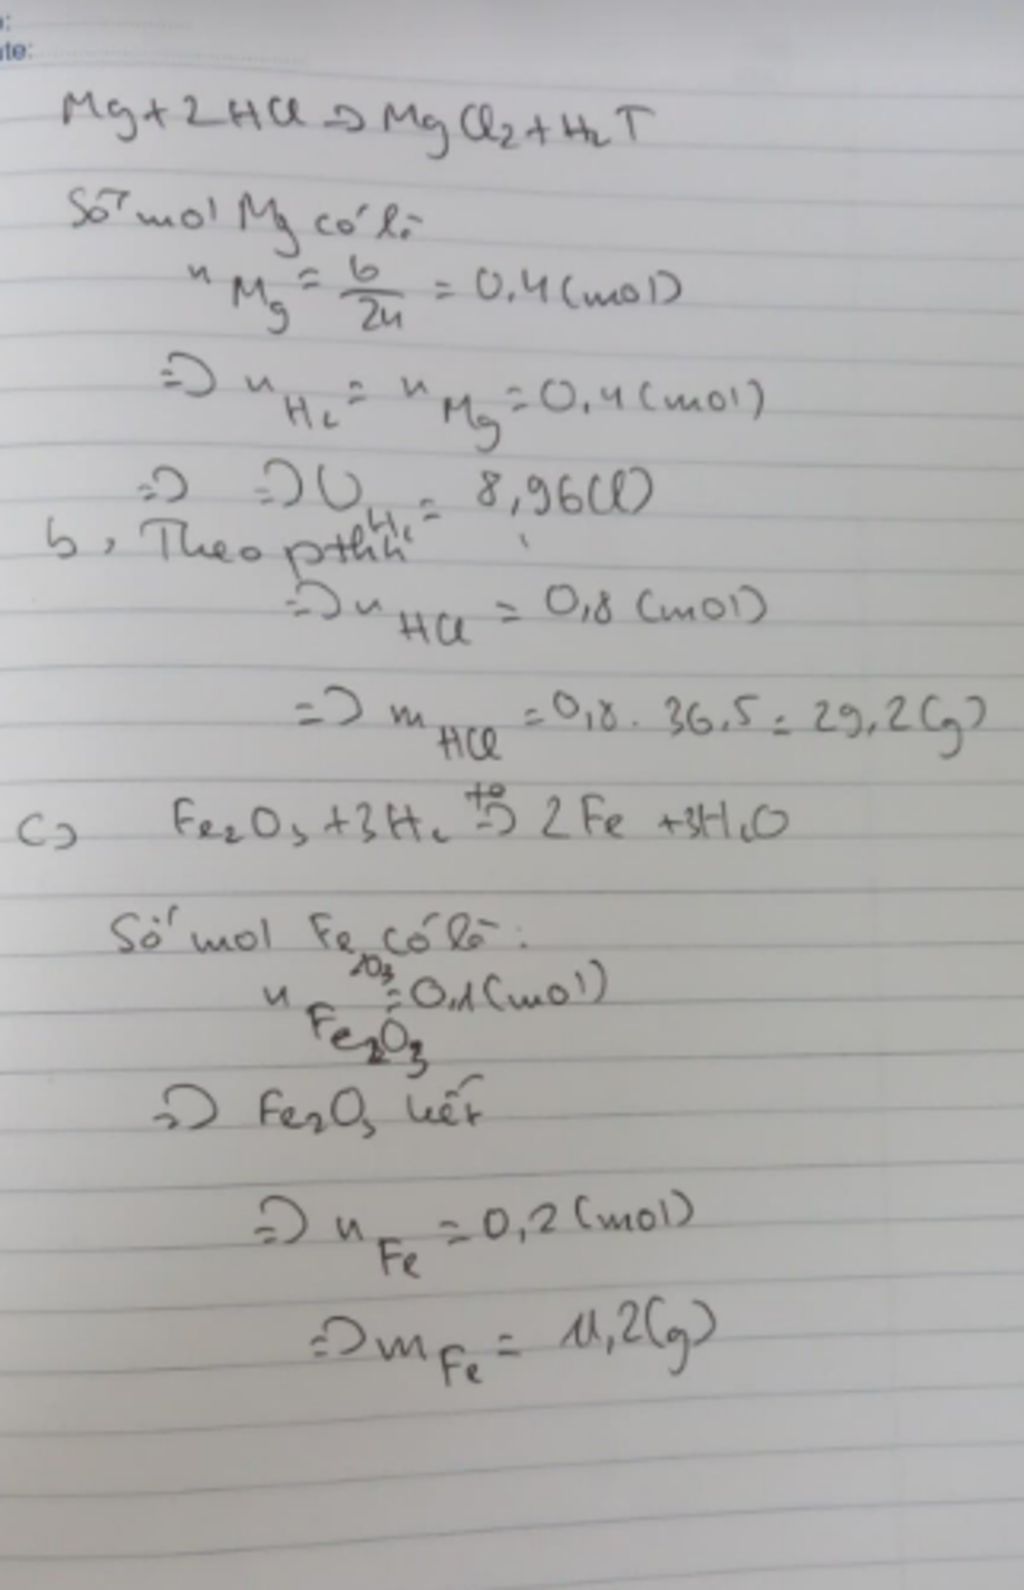 ate:
Mg + 2HCl => MgCl₂ + H₂↑
Số mol Mg có là
n Mg = 6/24 = 0,4 (mol)
=> n H₂ = n Mg = 0,4 (mol)
=> => V H₂ = 8,96 (l)
b, Theo pthh
=> n HCl = 0,8 (mol)
=> m HCl = 0,8 . 36,5 = 29,2 (g)
c) Fe₂O₃ + 3H₂ t° => 2Fe + 3H₂O
Số mol Fe₂O₃ có là :
n Fe₂O₃ = 0,1 (mol)
=> Fe₂O₃ hết
=> n Fe = 0,2 (mol)
=> m Fe = 11,2 (g)